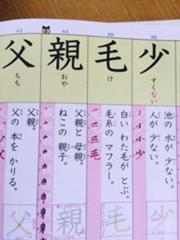 少
すくない
池の 水が 少ない。
人が 少ない。
毛
け
白い わた毛が とぶ。
毛糸の マフラー。
親
おや
父親と 母親。
ねこの 親子。
父
ちち
父親。
父の 本を かりる。
少
毛
親
父